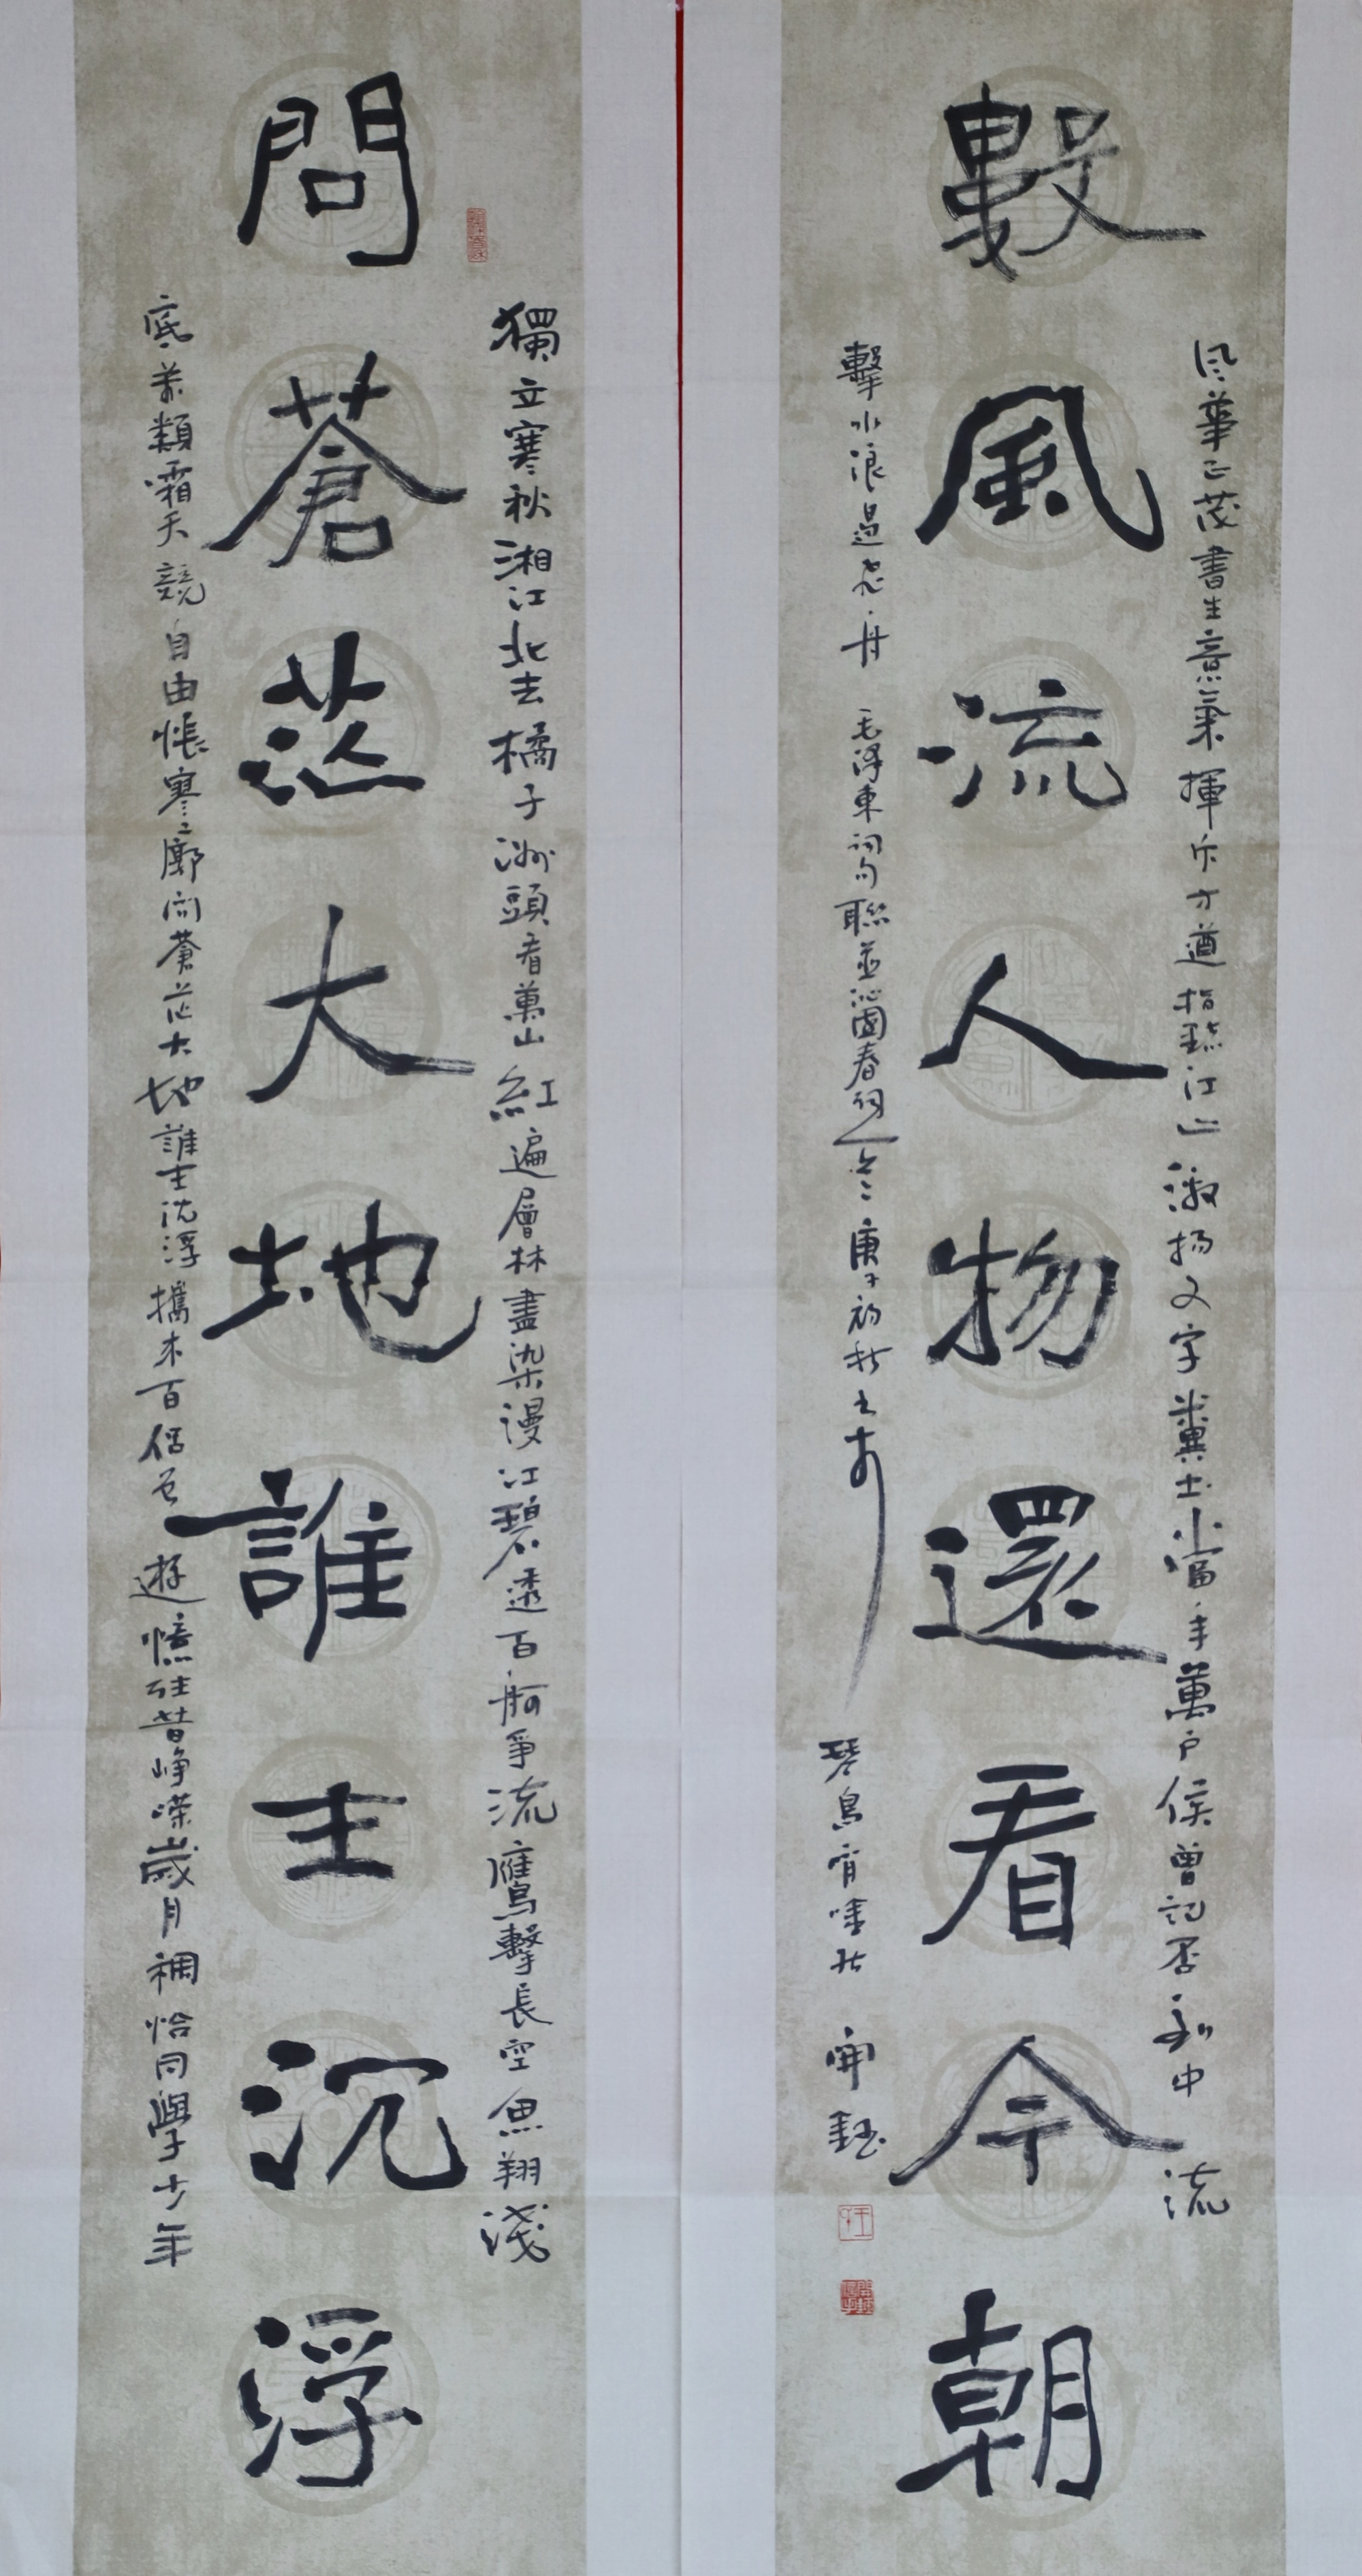 問蒼茫大地誰主沉浮
獨立寒秋湘江北去橘子洲頭看萬山紅遍層林盡染漫江碧透百舸爭流鷹擊長空魚翔淺
底萬類霜天競自由悵寥廓問蒼茫大地誰主沈浮攜來百侶曾遊憶往昔崢嶸歲月稠恰同學少年
數風流人物還看今朝
风華正茂書生意氣揮斥方遒指點江山激揚文字糞土當年萬户侯曾記否到中流
擊水浪遏飛舟 毛澤東詞句聯並沁園春詞 庚子初秋